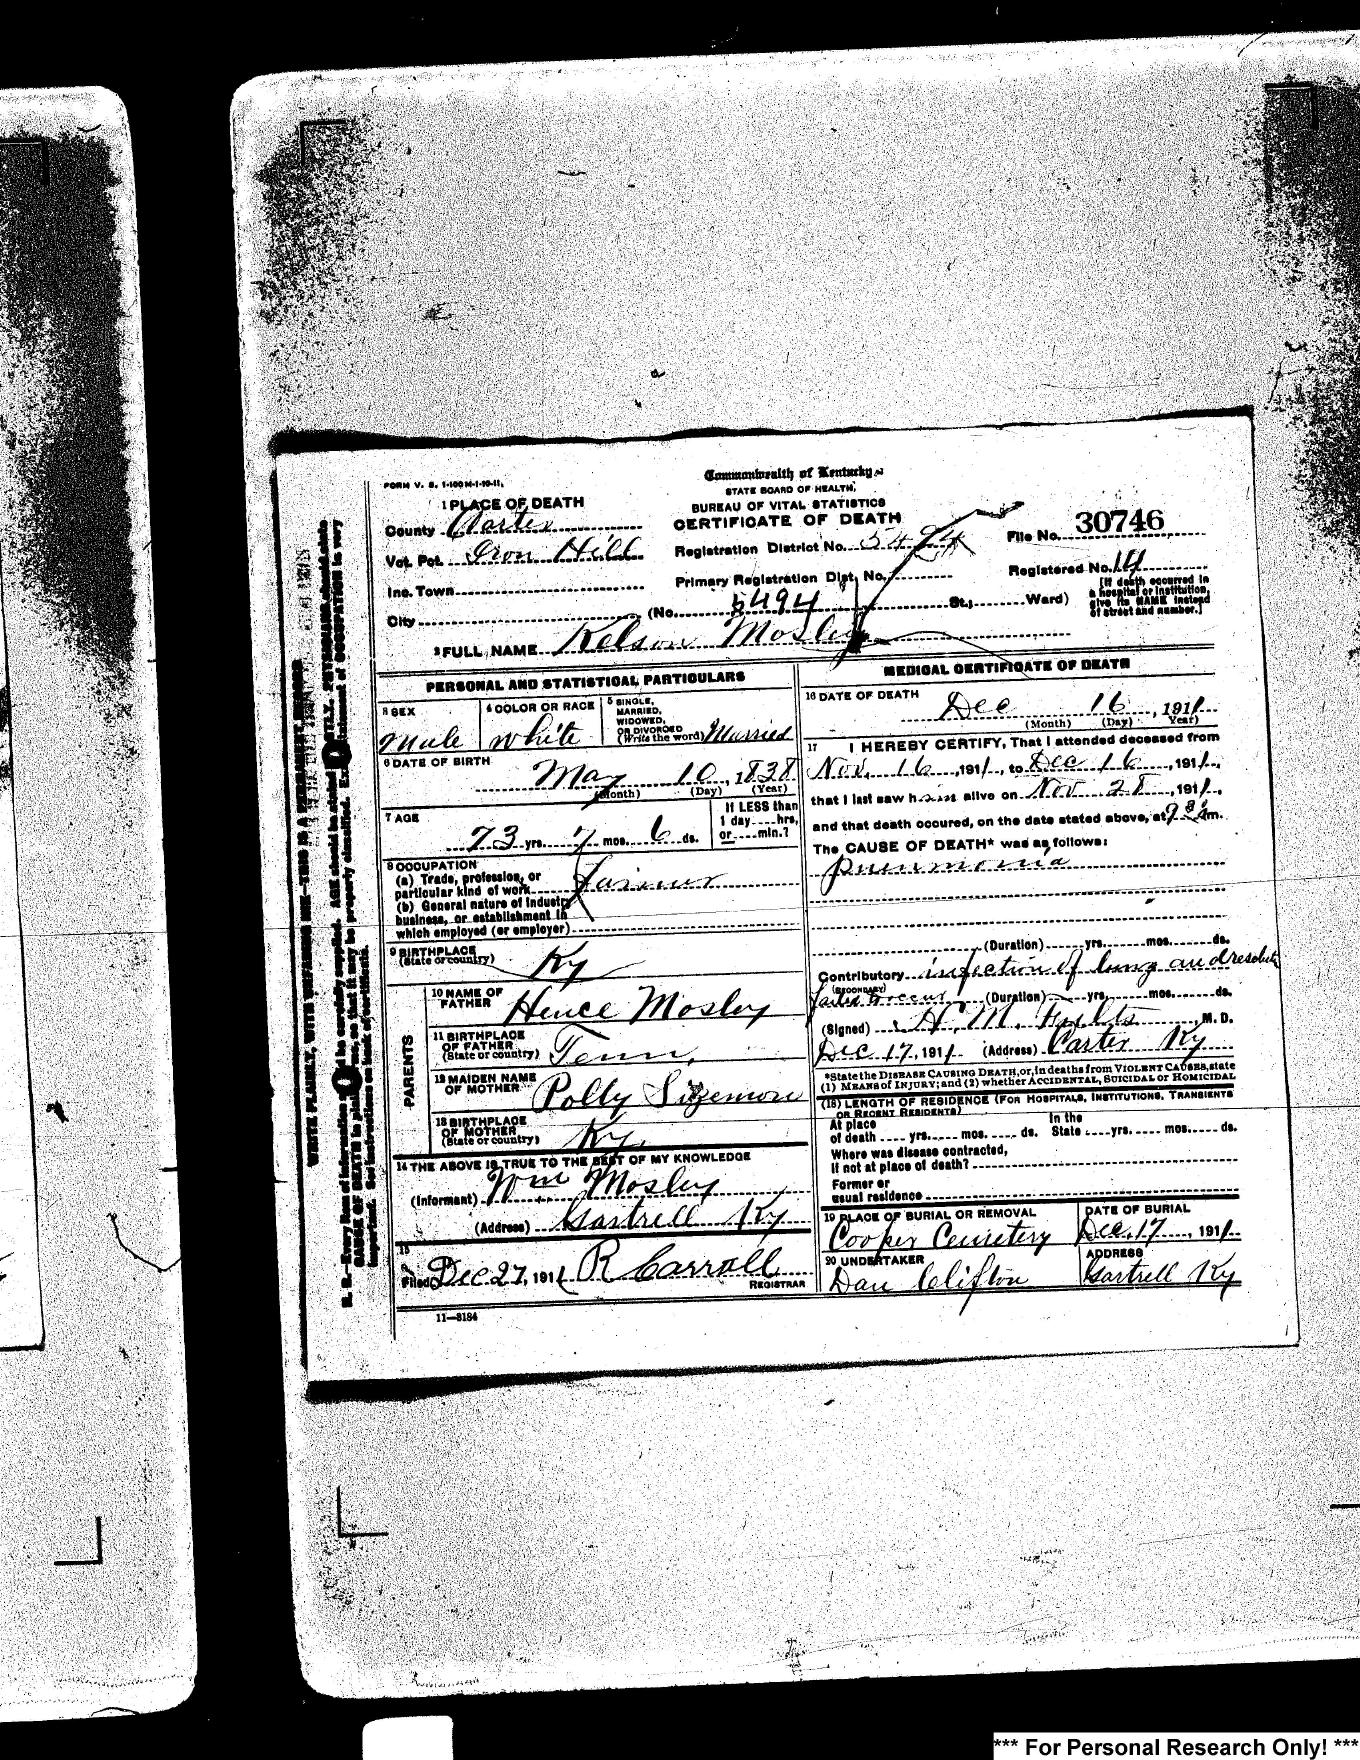 FORM V. S. 1-100M-1-10-11.
Commonwealth of Kentucky
STATE BOARD OF HEALTH,
BUREAU OF VITAL STATISTICS
CERTIFICATE OF DEATH
1 PLACE OF DEATH
County Carter
Vot. Pct. Iron Hill
Inc. Town
City
Registration District No. 5494
Primary Registration Dist. No.
(No. 5494 St.; Ward)
File No. 30746
Registered No. 14
[If death occurred in
a hospital or institution,
give its NAME instead
of street and number.]
2 FULL NAME Kelson Mosley
PERSONAL AND STATISTICAL PARTICULARS
3 SEX
Male
4 COLOR OR RACE
White
5 SINGLE,
MARRIED,
WIDOWED,
OR DIVORCED
(Write the word) Married
6 DATE OF BIRTH
May 10, 1838
(Month) (Day) (Year)
7 AGE
73 yrs. 7 mos. 6 ds.
If LESS than
1 day hrs,
or min.?
8 OCCUPATION
(a) Trade, profession, or
particular kind of work Farmer
(b) General nature of industry
business, or establishment in
which employed (or employer)
9 BIRTHPLACE
(State or country) Ky
PARENTS
10 NAME OF
FATHER Hence Mosley
11 BIRTHPLACE
OF FATHER
(State or country) Tenn.
12 MAIDEN NAME
OF MOTHER Polly Sizemore
13 BIRTHPLACE
OF MOTHER
(State or country) Ky
14 THE ABOVE IS TRUE TO THE BEST OF MY KNOWLEDGE
(Informant) Wm Mosley
(Address) Gartrell Ky
15
Filed Dec 27, 1911 R Carroll
REGISTRAR
11-3184
MEDICAL CERTIFICATE OF DEATH
16 DATE OF DEATH
Dec 16, 1911
(Month) (Day) Year)
17 I HEREBY CERTIFY, That I attended deceased from
Nov. 16, 1911, to Dec 16, 1911,
that I last saw him alive on Nov 28, 1911,
and that death occured, on the date stated above, at 9 m.
The CAUSE OF DEATH* was as follows:
Pneumonia
(Duration) yrs. mos. ds.
Contributory infection of lung and
(SECONDARY)
(Duration) yrs. mos. ds.
(Signed) H. M. Fults, M. D.
Dec 17, 1911 (Address) Carter Ky
*State the DISEASE CAUSING DEATH, or, in deaths from VIOLENT CAUSES, state
(1) MEANS of INJURY; and (2) whether ACCIDENTAL, SUICIDAL or HOMICIDAL
(18) LENGTH OF RESIDENCE (FOR HOSPITALS, INSTITUTIONS, TRANSIENTS
OR RECENT RESIDENTS)
At place In the
of death yrs. mos. ds. State yrs. mos. ds.
Where was disease contracted,
if not at place of death?
Former or
usual residence
19 PLACE OF BURIAL OR REMOVAL
Cooper Cemetery
DATE OF BURIAL
Dec. 17, 1911
20 UNDERTAKER
Dan Clifton
ADDRESS
Gartrell Ky
*** For Personal Research Only! ***